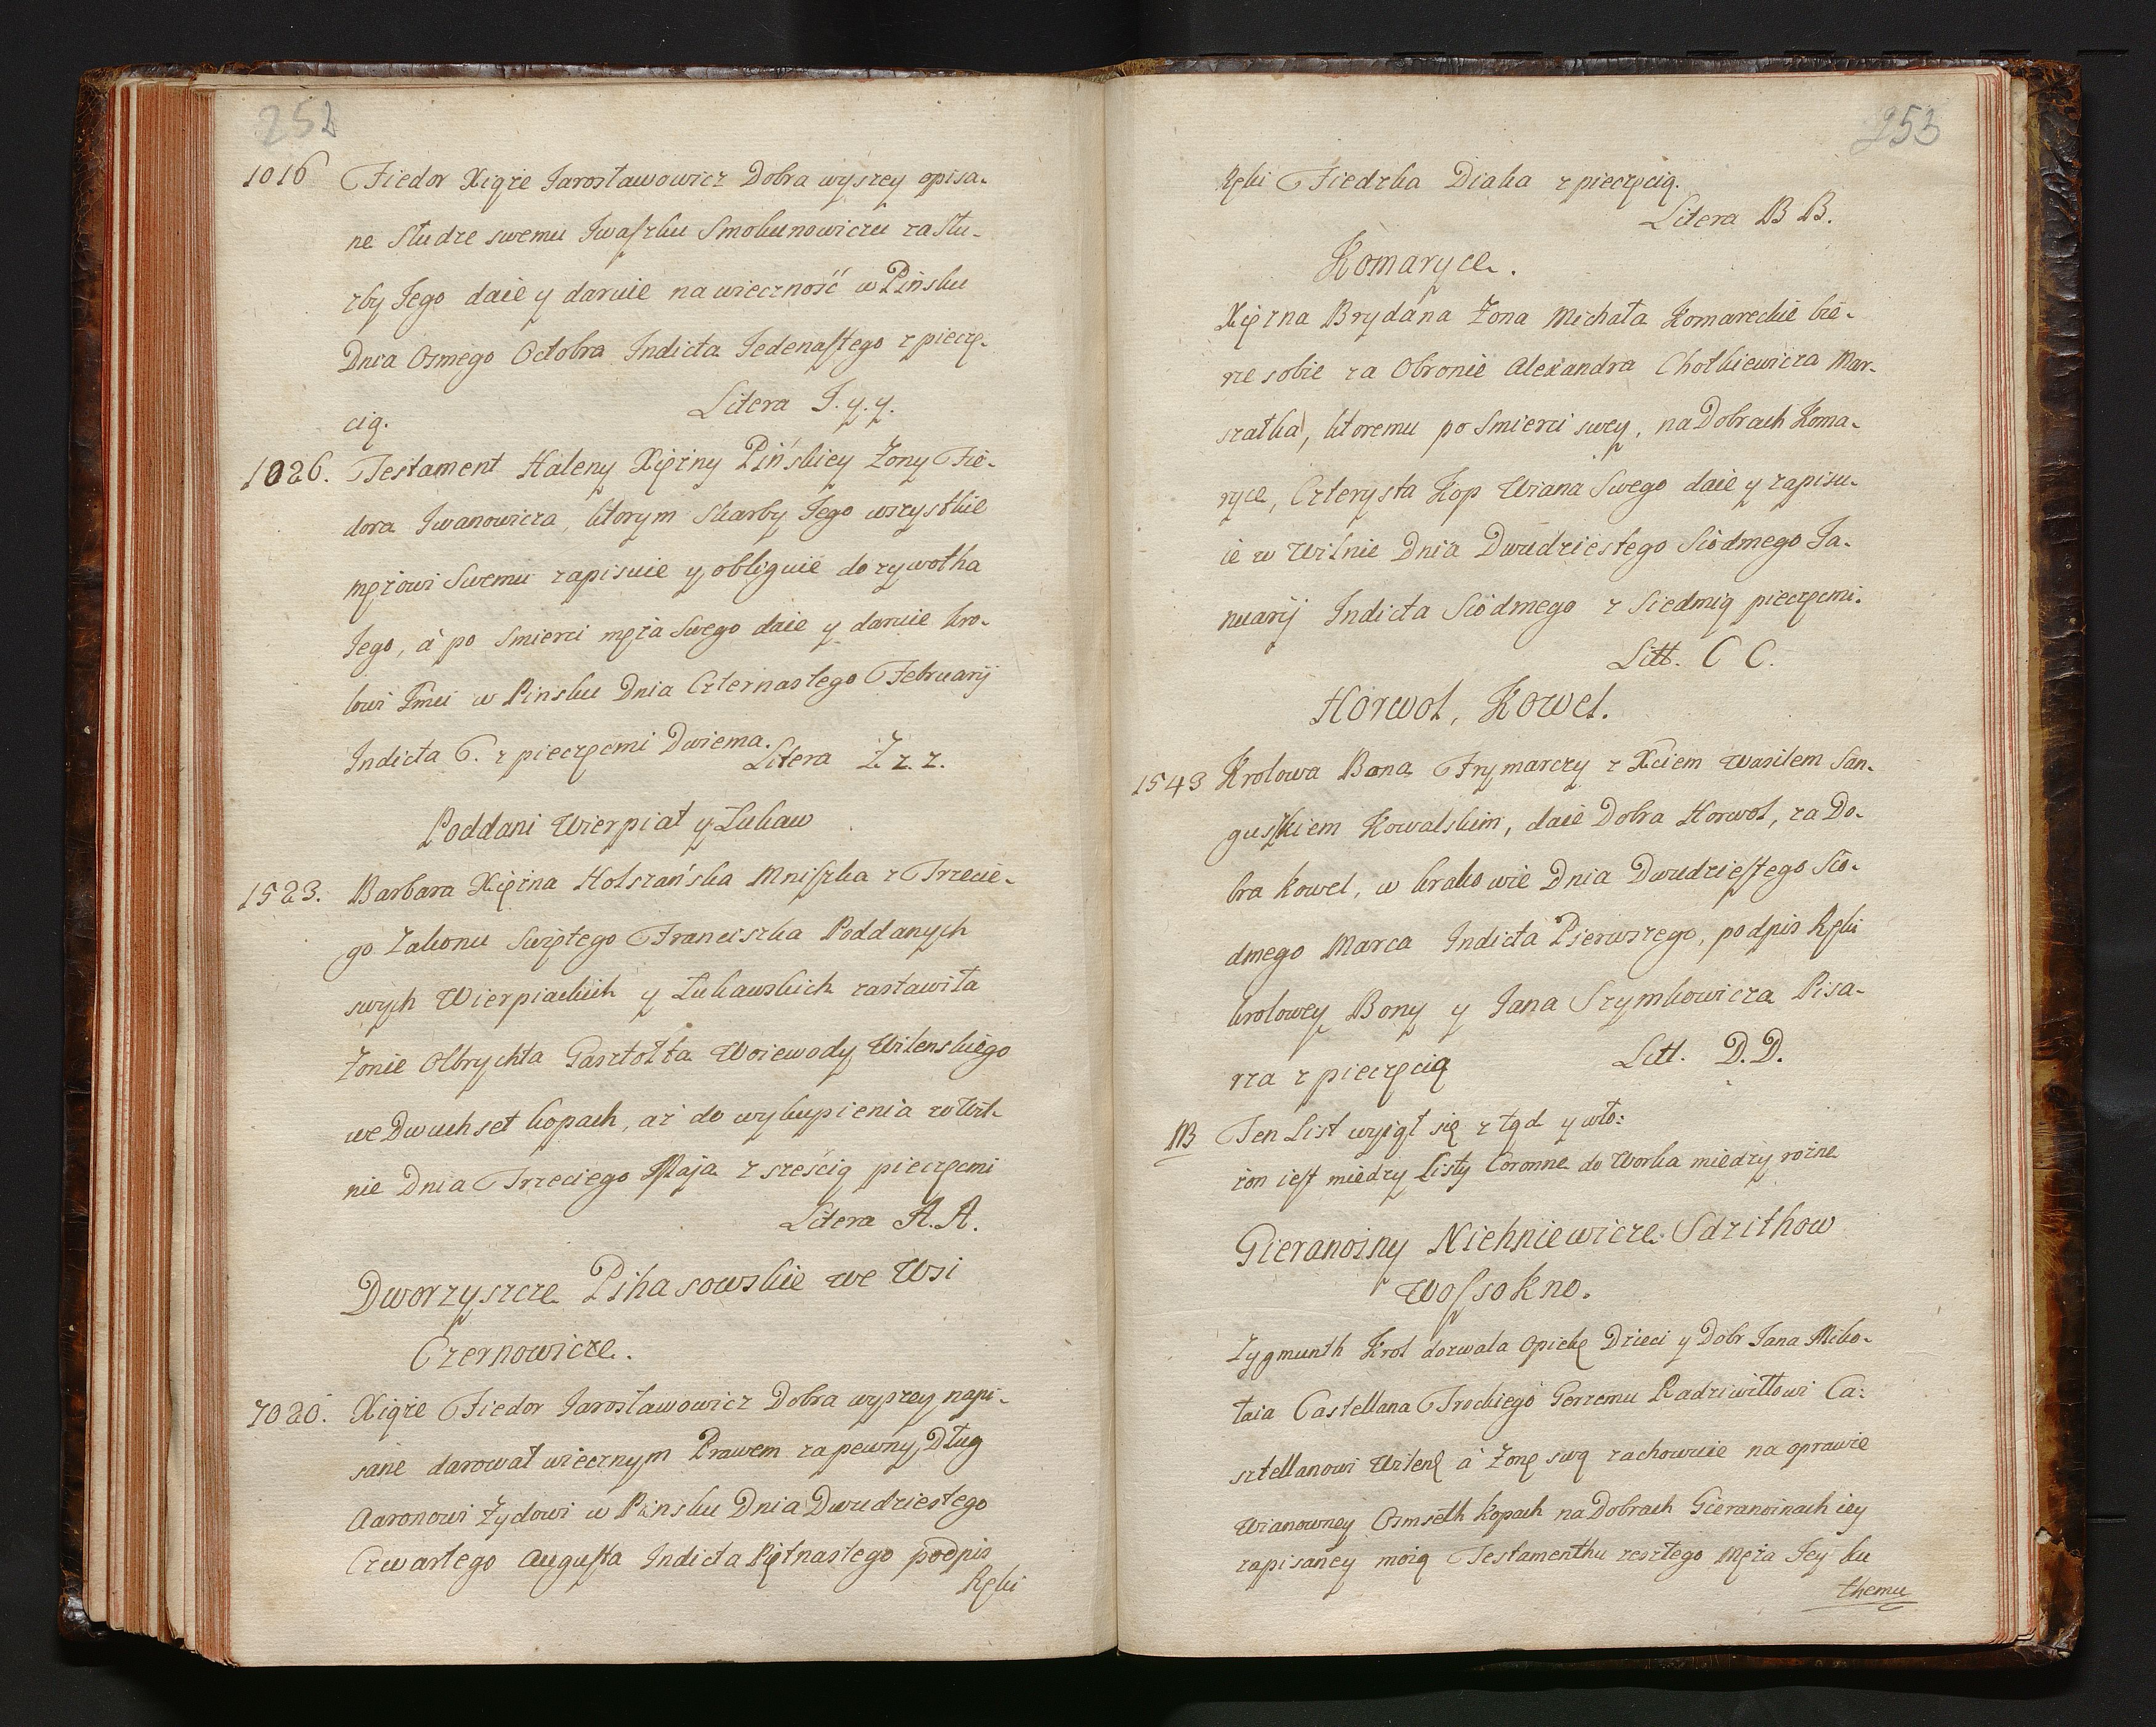 252
1016 Fiedor Xiąże Jarosławowicz Dobra wyszey opisa-
ne Słudze swemu Jwaszku Smokunowiczu za Słu-
zby Jego daie y daruie na wieczność w Pińsku
Dnia Osmego Octobra Indicta Jedenastego z pieczę-
cią. Litera J. y. y.
1026. Testament Haleny Xiężny Pińskiey Zony Fie-
dora Jwanowicza, ktorym Skarby Jego wszystkie
mężowi Swemu zapisuie y obliguie do zywotha
Jego, à po Smierci męża Swego daie y daruie kro-
lowi Jmci w Pinsku Dnia Czternastego Februarij
Indicta 6. z pieczęcmi Dwiema. Litera Z. z. z.
Poddani Wierpiat y Lukaw
1523. Barbara Xiężna Holszańska Mniszka z Trzecie-
go Zakonu Swiętego Franciszka Poddanych
swych Wierpiackich y Lukawskich zastawiła
Zonie Olbrychta Gasztołta Woiewody Wilenskiego
we Dwuchset kopach, aż do wykupienia w Wil-
nie Dnia Trzeciego Maja z sześcią pieczęcmi
Litera A. A.
Dworzyszcze Pihasowskie we Wsi
Czernowicze.
7020. Xiąże Fiedor Jarosławowicz Dobra wyszey napi-
sane darował wiecznym Prawem za pewny Dług
Aaronowi Zydowi w Pinsku Dnia Dwudziestego
Czwartego Augusta Indicta Piętnastego podpis
Ręki
253
Ręki Fiedzka Diaka z pieczęcią.
Litera B B.
Komaryce.
Xiężna Brydana Zona Michała Komareckie bie-
rze sobie za Obronię Alexandra Chotkiewicza Mar-
szałka, ktoremu po Smierci swey, na Dobrach Koma-
ryce, Czterysta Kop Wiana Swego daie y zapisu-
ie w Wilnie Dnia Dwudziestego Siodmego Ja-
nuarij Indicta Siodmego z Siedmią pieczęcmi.
Litt. C C.
Horwol, Kowel.
1543 Krolowa Bona Frymarczy z Xciem Wasilem San-
guszkiem Kowalskim, daie Dobra Horwol, za Do-
bra Kowel, w krakowie Dnia Dwudziestego Sio-
dmego Marca Indicta Pierwszego, podpis Ręki
krolowey Bony y Jana Szymkowicza Pisa-
rza z pieczęcią Litt. D. D.
NB Ten List wyiął się z tąd y wło-
żon iest miedzy Listy Coronne do Worka miedzy rożne
Gieranoiny Niehniewicze Sdzithow
Wossokno.
Zygmunth Krol dozwala opiekę Dzieci y Dobr Jana Miko-
łaia Castellana Trockiego Gerzemu Radziwiłłowi Ca-
sztellanowi Wileń à Zonę swą zachowuie na oprawie
Wianowney Osmseth kopach na Dobrach Gieranoinach iey
zapisaney moią Testamenthu zeszłego Męża Jey ku
themu